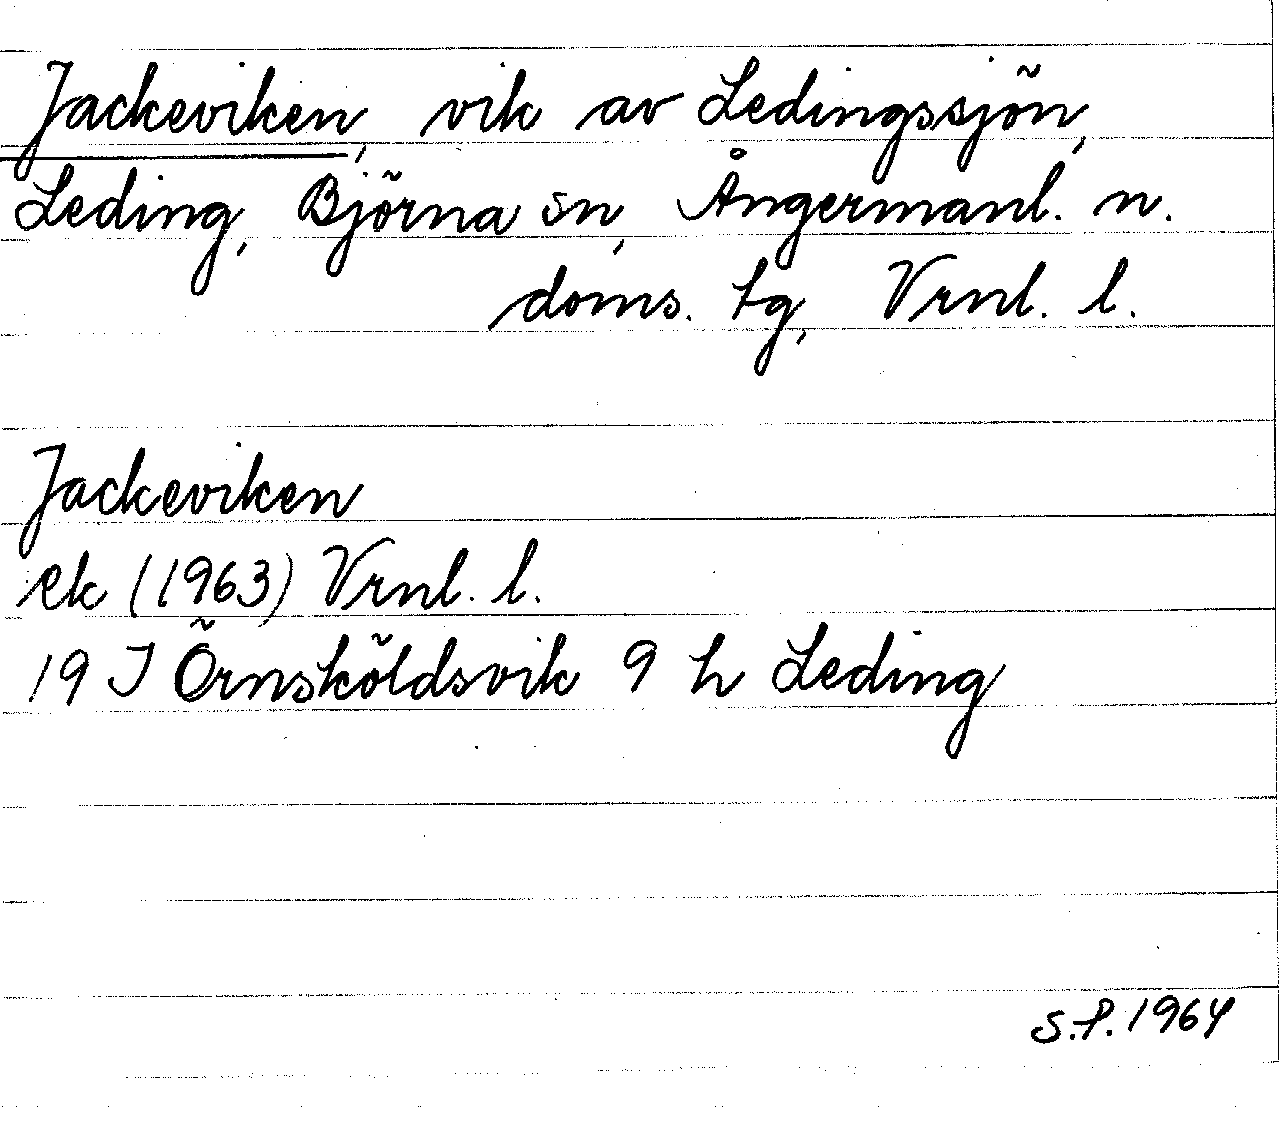 Jackeviken, vik av Ledingssjön,
Leding, Björna sn, Ångermanl. n.
doms. tg, Vrnl. l.
Jackeviken
ek (1963) Vrnl. l.
19 J Örnsköldsvik 9 h Leding
S.P. 1964